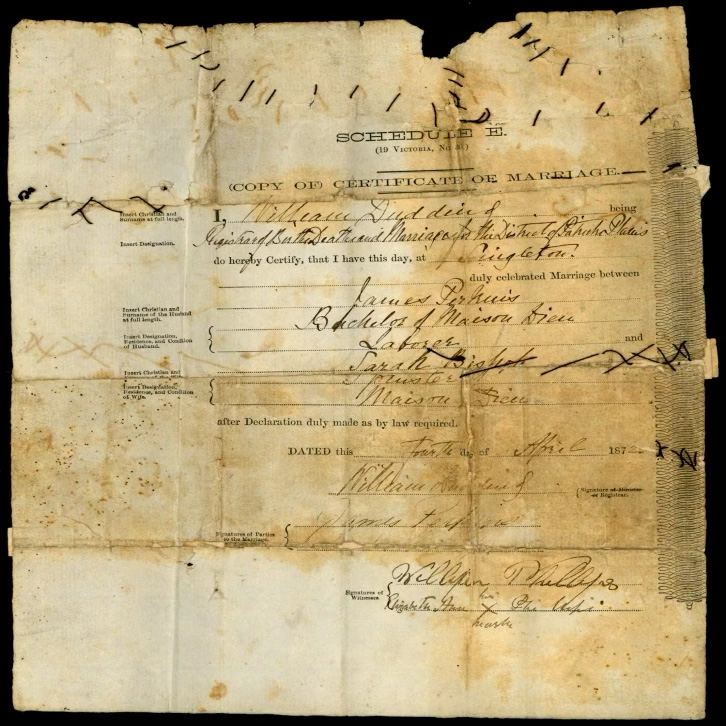 SCHEDULE E.
(19 Victoria, No.
(COPY OF) CERTIFICATE OF MARRIAGE.
Insert Christian and
Surname at full length.
I, William Dudding being
Insert Designation.
Registrar of Births Deaths and Marriages for the District of Patricks Plains
do hereby Certify, that I have this day, at Singleton.
duly celebrated Marriage between
Insert Christian and
Surname of the Husband
at full length.
James Perkins
Insert Designation,
Residence, and Condition
of Husband.
Bachelor of Maison Dieu
Laborer and
Insert Christian and
Sarah Bishop
Insert Designation,
Residence, and Condition
of Wife.
Spinster
Maison Dieu
after Declaration duly made as by law required.
DATED this fourth day of April 187
William Dudding
Signature of Minister
or Registrar.
Signatures of Parties
to the Marriage.
James Perkins
Signatures of
Witnesses
William Phillips
his
Elizabeth Ann X Phillips
mark